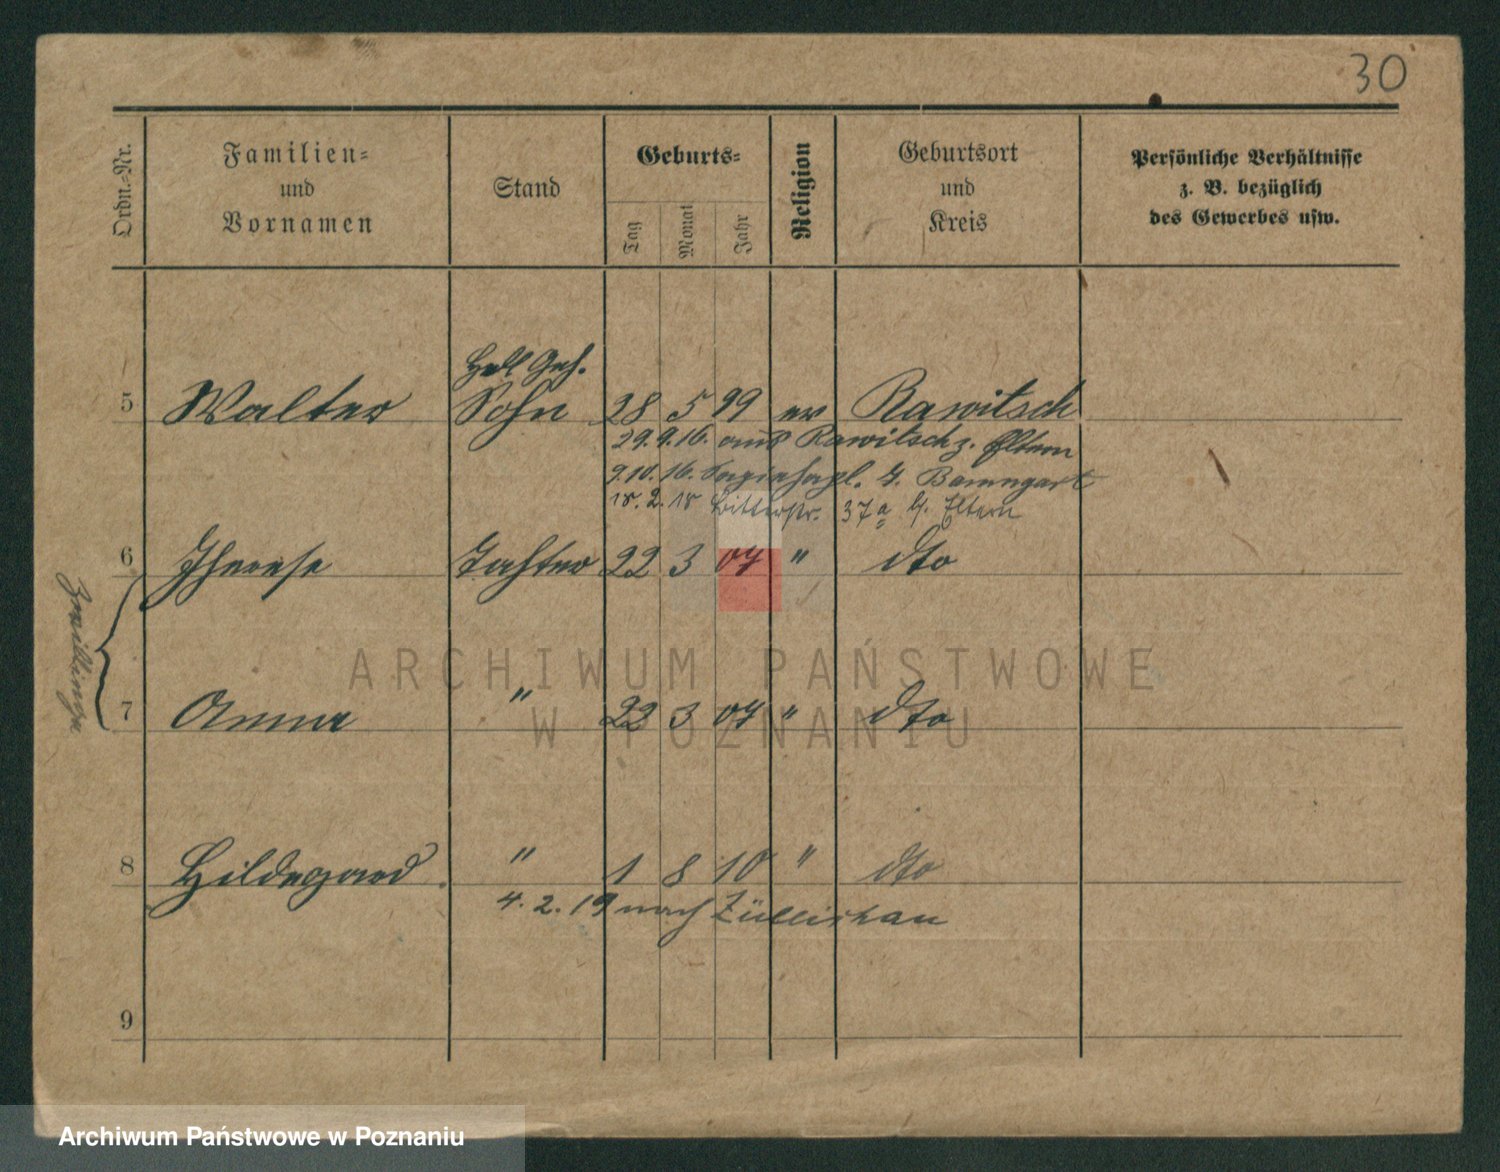 30
Ordn.-Nr.
Familien-
und
Vornamen
Stand
Geburts-
Tag
Monat
Jahr
Religion
Geburtsort
und
Kreis
Persönliche Verhältnisse
z. B. bezüglich
des Gewerbes usw.
Hdl. Geh.
5 Walter Sohn 28 5 99 ev Rawitsch
29.9.16. aus Rawitsch z. Eltern
9.10.16. b. Baumgart
18.2.18 Ritterstr. 37a b. Eltern
6 Therese Tochter 22 3 07 " dto
Zwillinge
7 Anna " 22 3 07 " dto
8 Hildegard " 1 8 10 " dto
4.2.19 nach Züllichau
9
ARCHIWUM PAŃSTWOWE
W POZNANIU
Archiwum Państwowe w Poznaniu